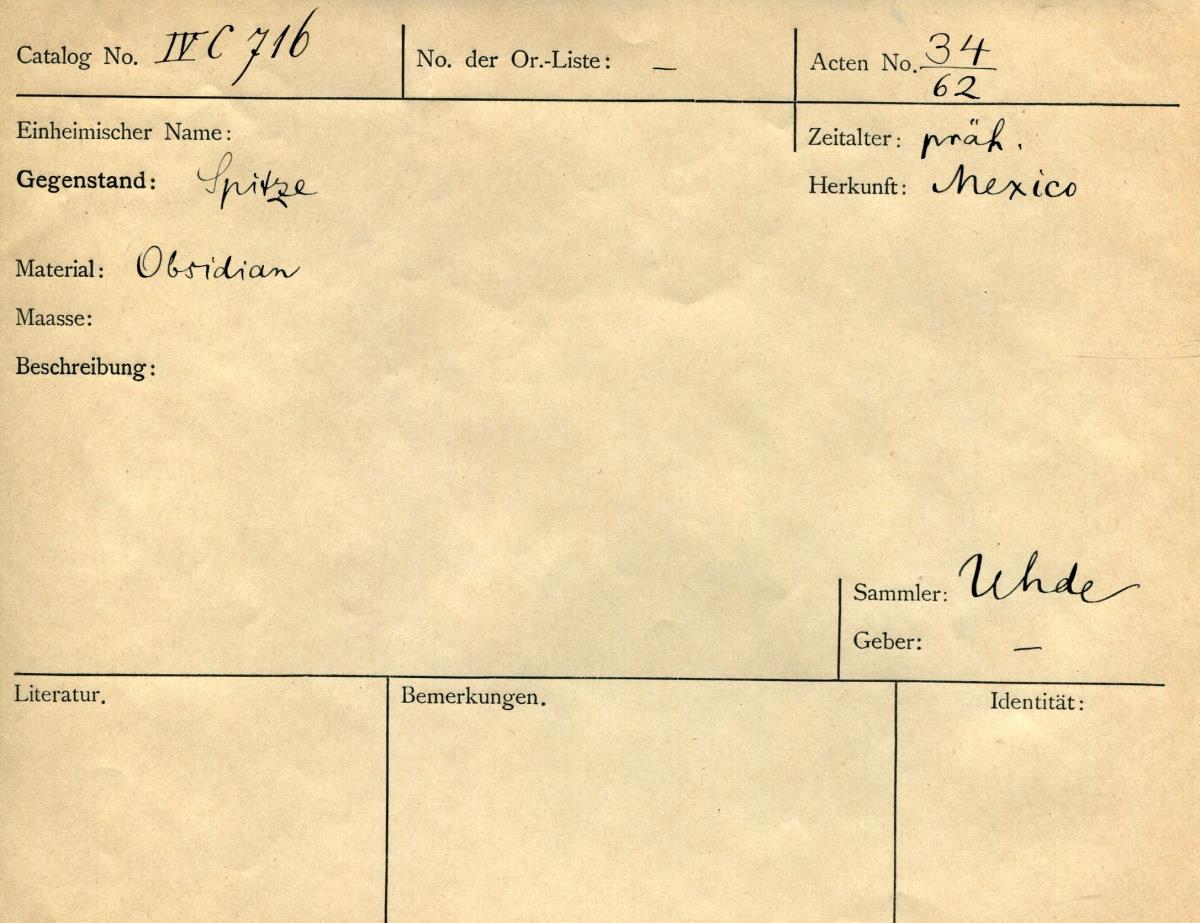 Catalog No. IV C 716
No. der Or.-Liste: —
Acten No. 34/62
Einheimischer Name:
Zeitalter: präh.
Gegenstand: Spitze
Herkunft: Mexico
Material: Obsidian
Maasse:
Beschreibung:
Sammler: Uhde
Geber: —
Literatur.
Bemerkungen.
Identität: